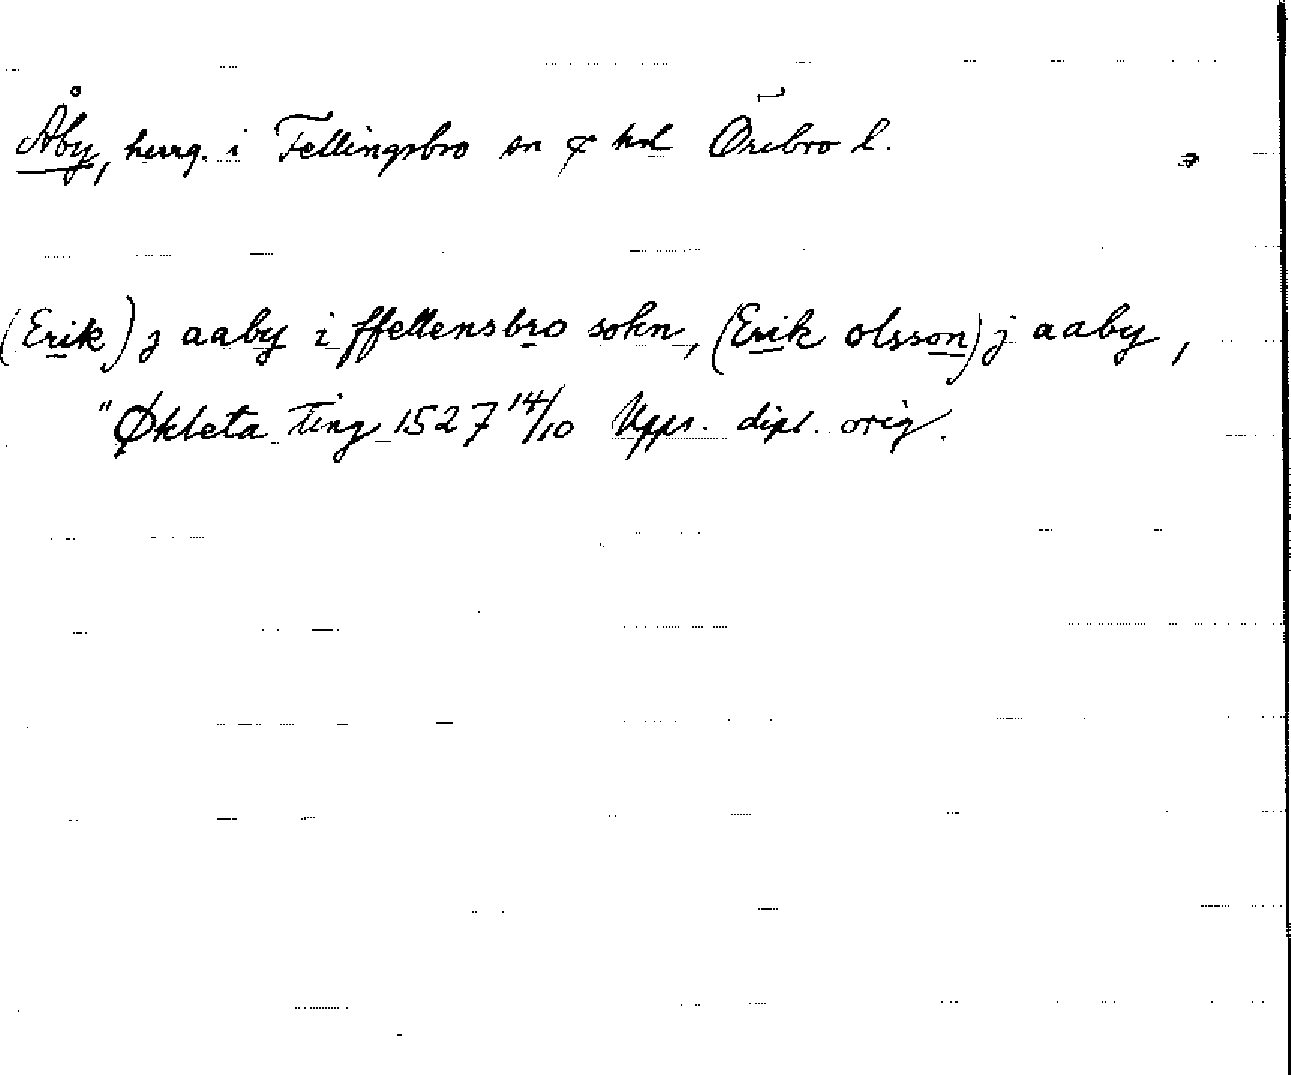 Åby, herrg. i Fellingsbro sn & hd Örebro l.
(Erik) j aaby i ffellensbro sokn, (Erik olsson) j aaby,
"Økbeta Ting 1527 14/10 Upps. dipl. orig.